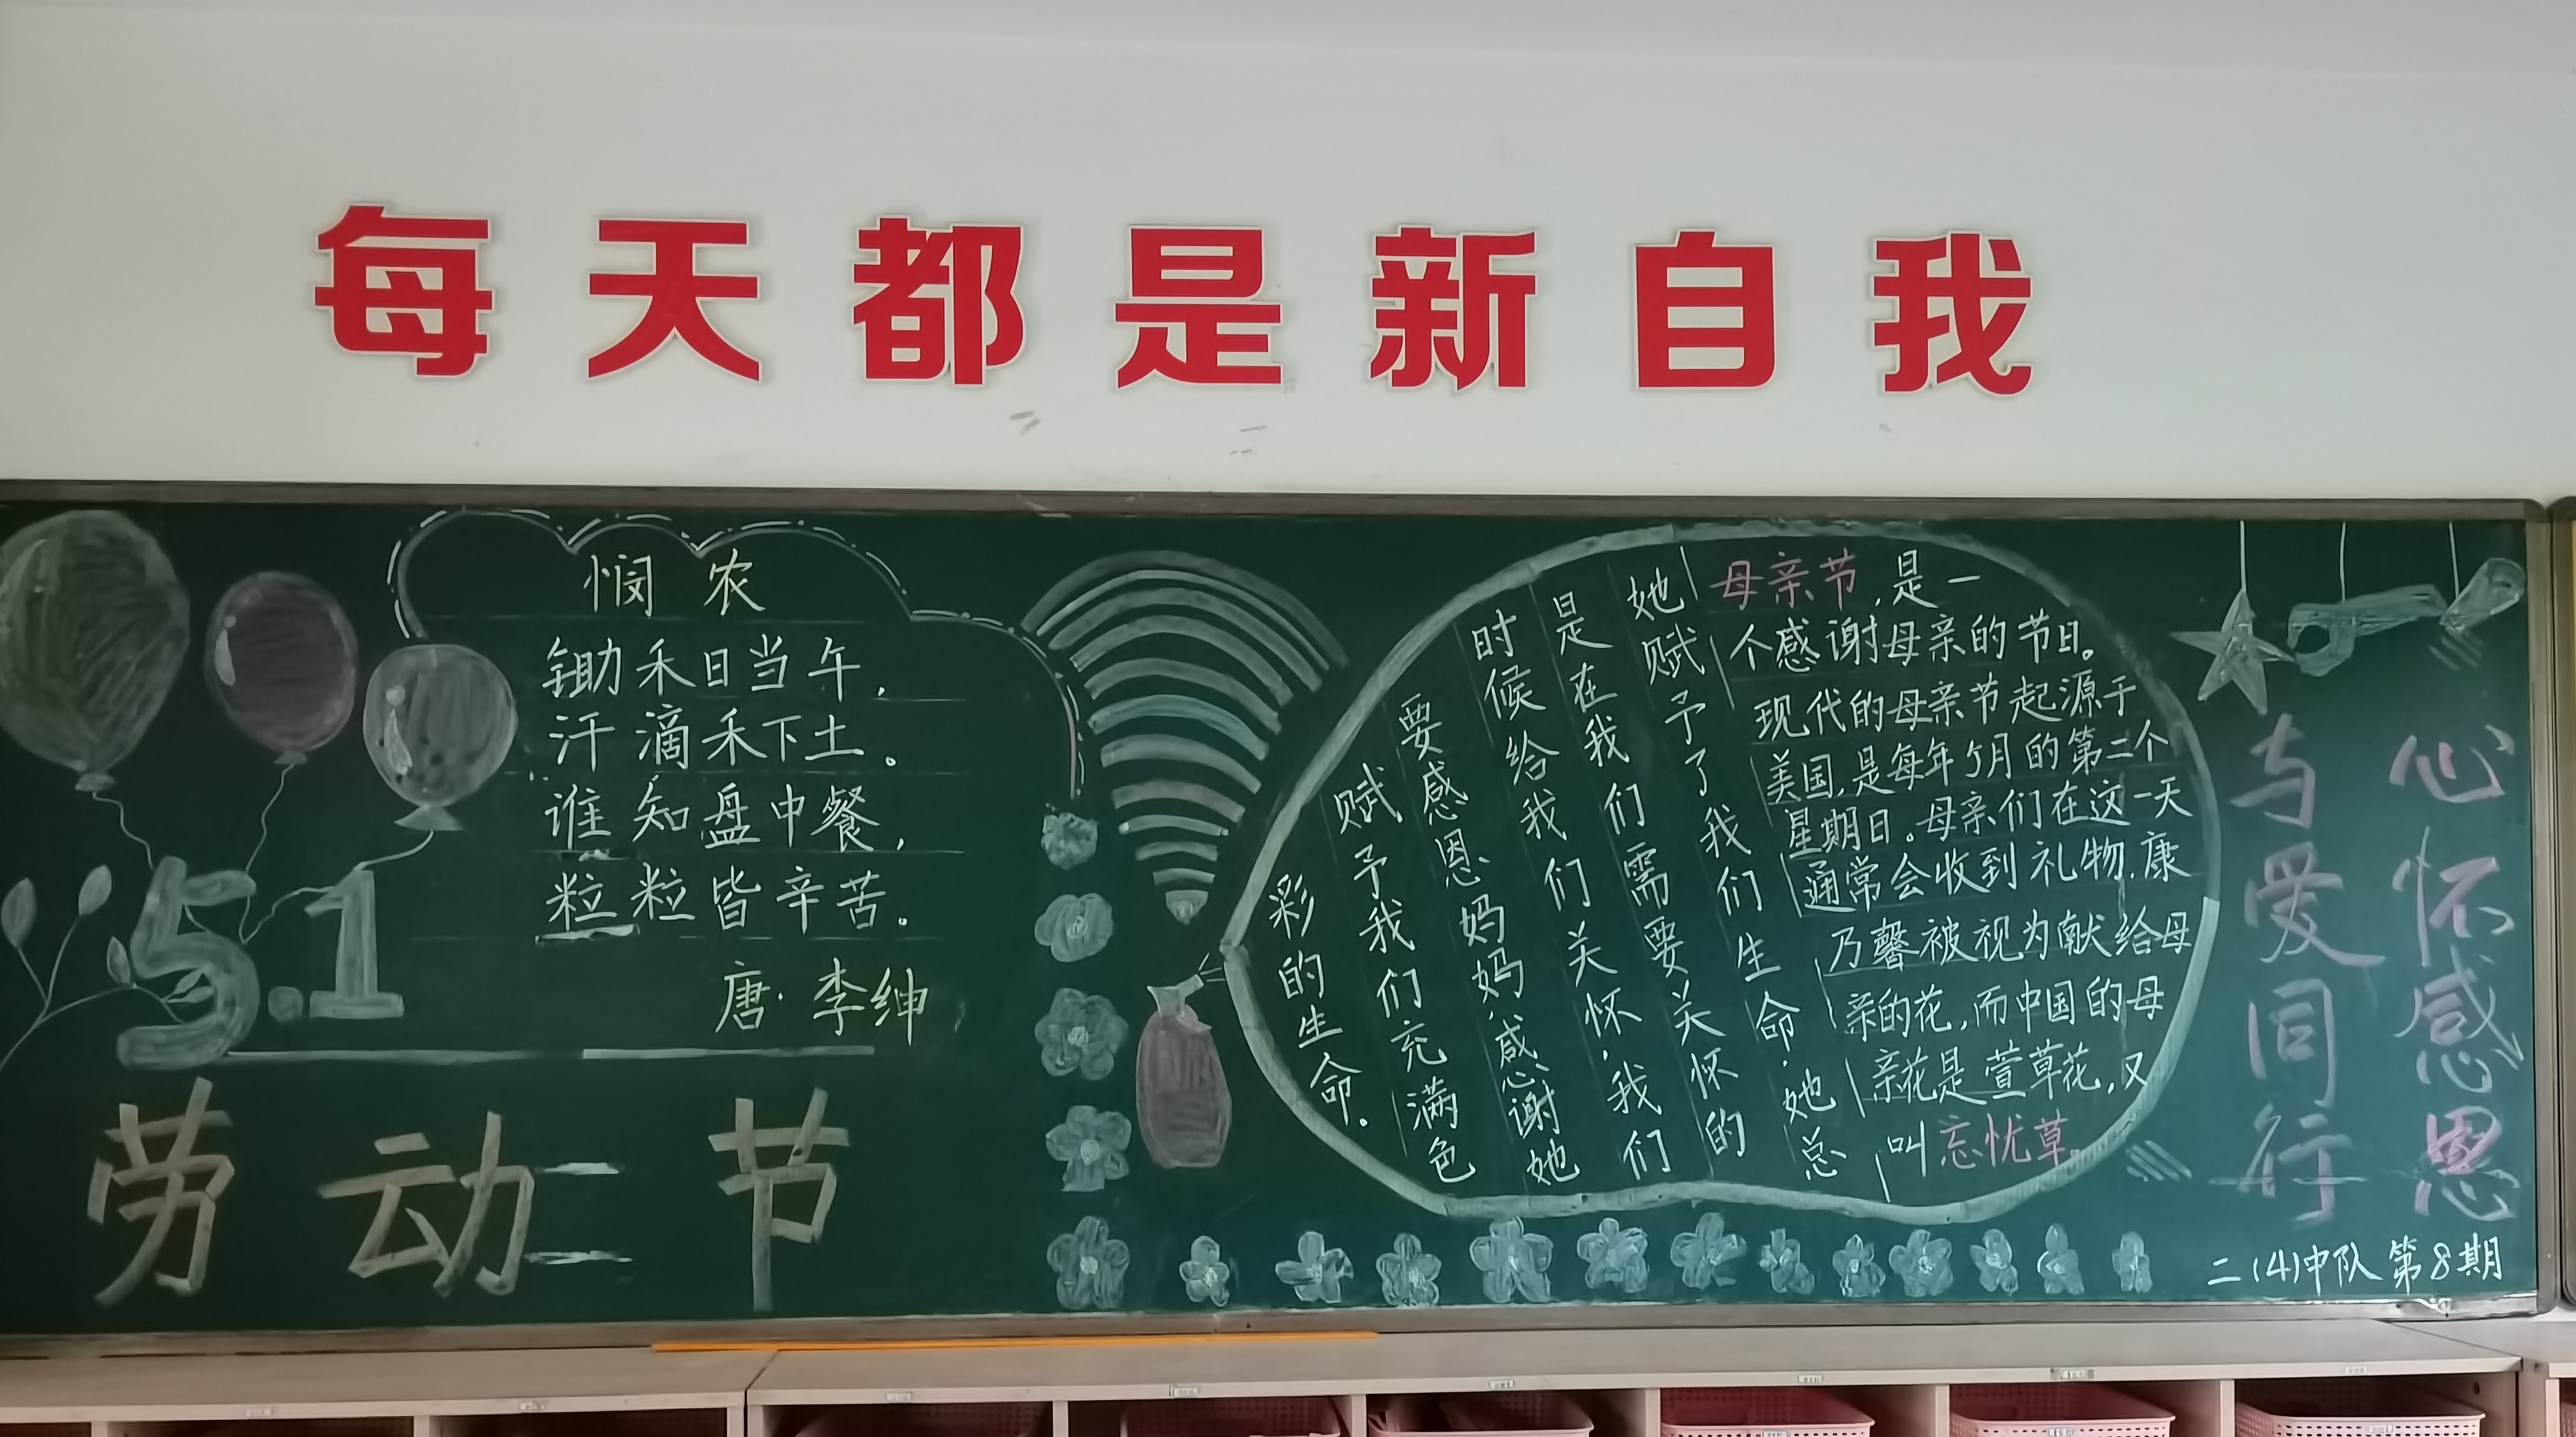 每天都是新自我
悯 农
锄禾日当午,
汗滴禾下土。
谁知盘中餐,
粒粒皆辛苦。
唐·李绅
5.1
劳动节
母亲节,是一
个感谢母亲的节日。
现代的母亲节起源于
美国,是每年5月的第二个
星期日。母亲们在这一天
通常会收到礼物.康
乃馨被视为献给母
亲的花,而中国的母
亲花是萱草花,又
叫忘忧草。
她赋予了我们生命.她总
是在我们需要关怀的
时候给我们关怀.我们
要感恩妈妈.感谢她
赋予我们充满色
彩的生命.
心怀感恩
与爱同行
二(4)中队 第8期